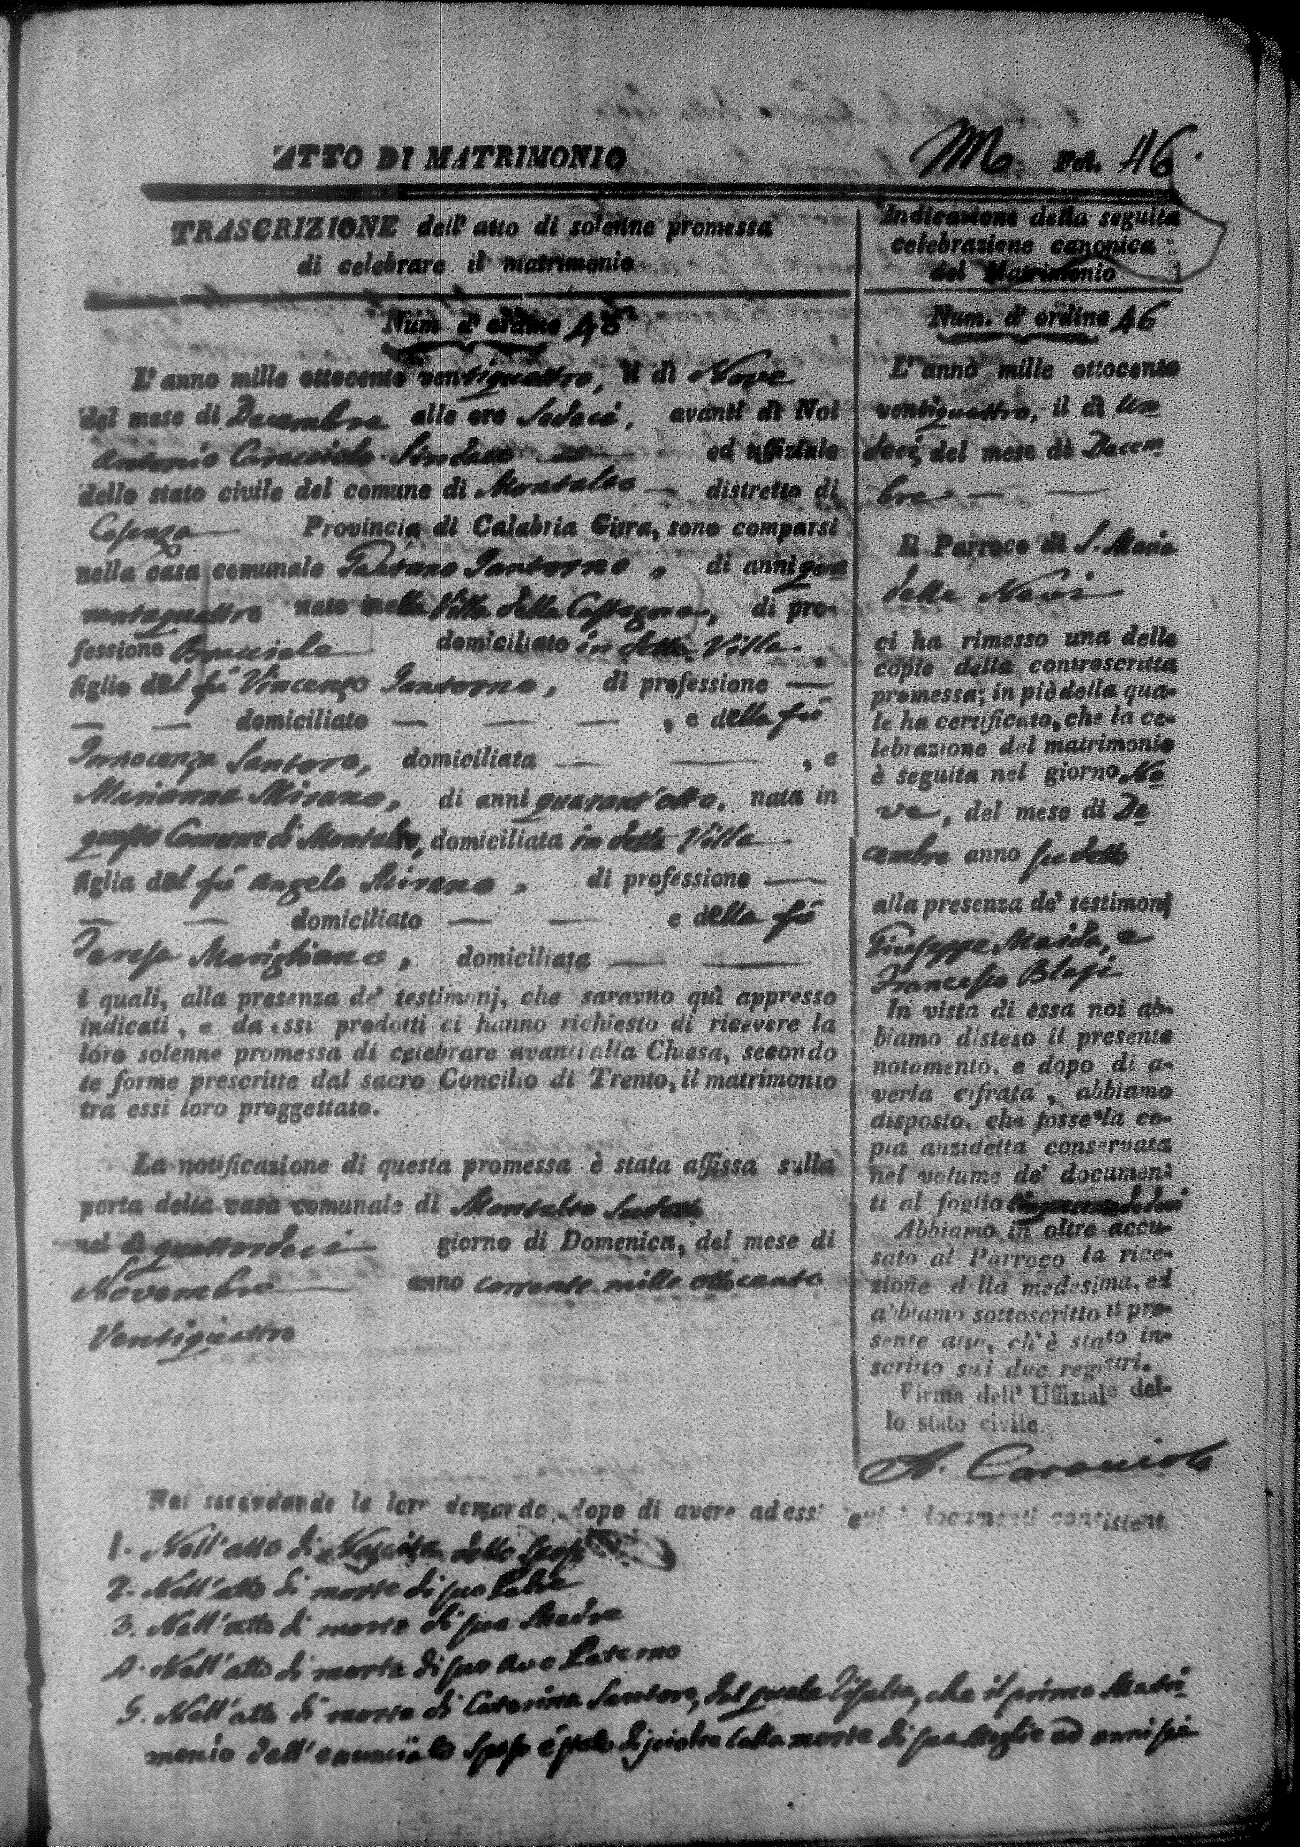 ATTO DI MATRIMONIO
Fol. 46.
TRASCRIZIONE dell' atto di solenne promessa
di celebrare il matrimonio
Num d' ordine 46
L' anno mille ottocento ventiquattro, il di Nove
del mese di Decembre alle ore Sedeci, avanti di Noi
Antonio Caracciolo Sindaco ed uffiziale
dello stato civile del comune di Montalto distretto di
Cosenza Provincia di Calabria Citra, sono comparsi
nella casa comunale Gaetano Santoro, di anni qua
rantaquattro nato nella Villa della, di pro-
fessione Bracciale domiciliato in detta Villa.
figlio del fù Vincenzo, di professione —
— — domiciliato — — — , e della fù
Innocenza Santoro, domiciliata — — , e
Marianna Mirano, di anni quarant'otto, nata in
questo Comune di Montalto, domiciliata in detta Villa
figlia del fù Angelo Mirano, di professione —
— — domiciliato — — e della fù
Teresa Marigliano, domiciliata — —
i quali, alla presenza de' testimonj, che saranno quì appresso
indicati, e da essi prodotti ci hanno richiesto di ricevere la
loro solenne promessa di celebrare avanti alla Chiesa, secondo
le forme prescritte dal sacro Concilio di Trento, il matrimonio
tra essi loro proggettato.
La notificazione di questa promessa è stata affissa sulla
porta della casa comunale di Montalto
quattordeci giorno di Domenica, del mese di
Novembre anno corrente mille ottocento
Ventiquattro
Indicazione della seguita
celebrazione canonica
del Matrimonio
Num. d' ordine 46
L' anno mille ottocento
ventiquattro, il di un
deci del mese di Decem
bre — —
Il Parroco di S. Maria
della Nevi
ci ha rimesso una delle
copie della controscritta
promessa; in piè della qua-
le ha certificato, che la ce-
lebrazione del matrimonio
è seguita nel giorno No
ve, del mese di De
cembre anno sudetto
alla presenza de' testimonj
Giuseppe Maida, e
Francesco Blasi
In vista di essa noi ab-
biamo disteso il presente
notamento, e dopo di a-
verla cifrata, abbiamo
disposto, che fosse la co-
pia anzidetta conservata
nel volume de' documen-
ti al foglio
Abbiamo in oltre accu-
sato al Parroco la rice-
zione della medesima, ed
abbiamo sottoscritto il pre-
sente atto, ch' è stato in-
scritto sui due registri.
Firma dell' Uffiziale del-
lo stato civile
A. Caracciolo
Noi secondando la loro domanda, dopo di avere ad essi documenti consistenti
1. Nell'atto di Nascita dello Sposo
2. Nell'atto di morte di suo Padre
3. Nell'atto di morte di sua Madre
4. Nell'atto di morte di suo Avo Paterno
5. Nell'atto di morte di Caterina Santoro, dal quale risulta, che il primo Matri
monio dell'enunciato Sposo è stato disciolto colla morte di sua Moglie ad anni